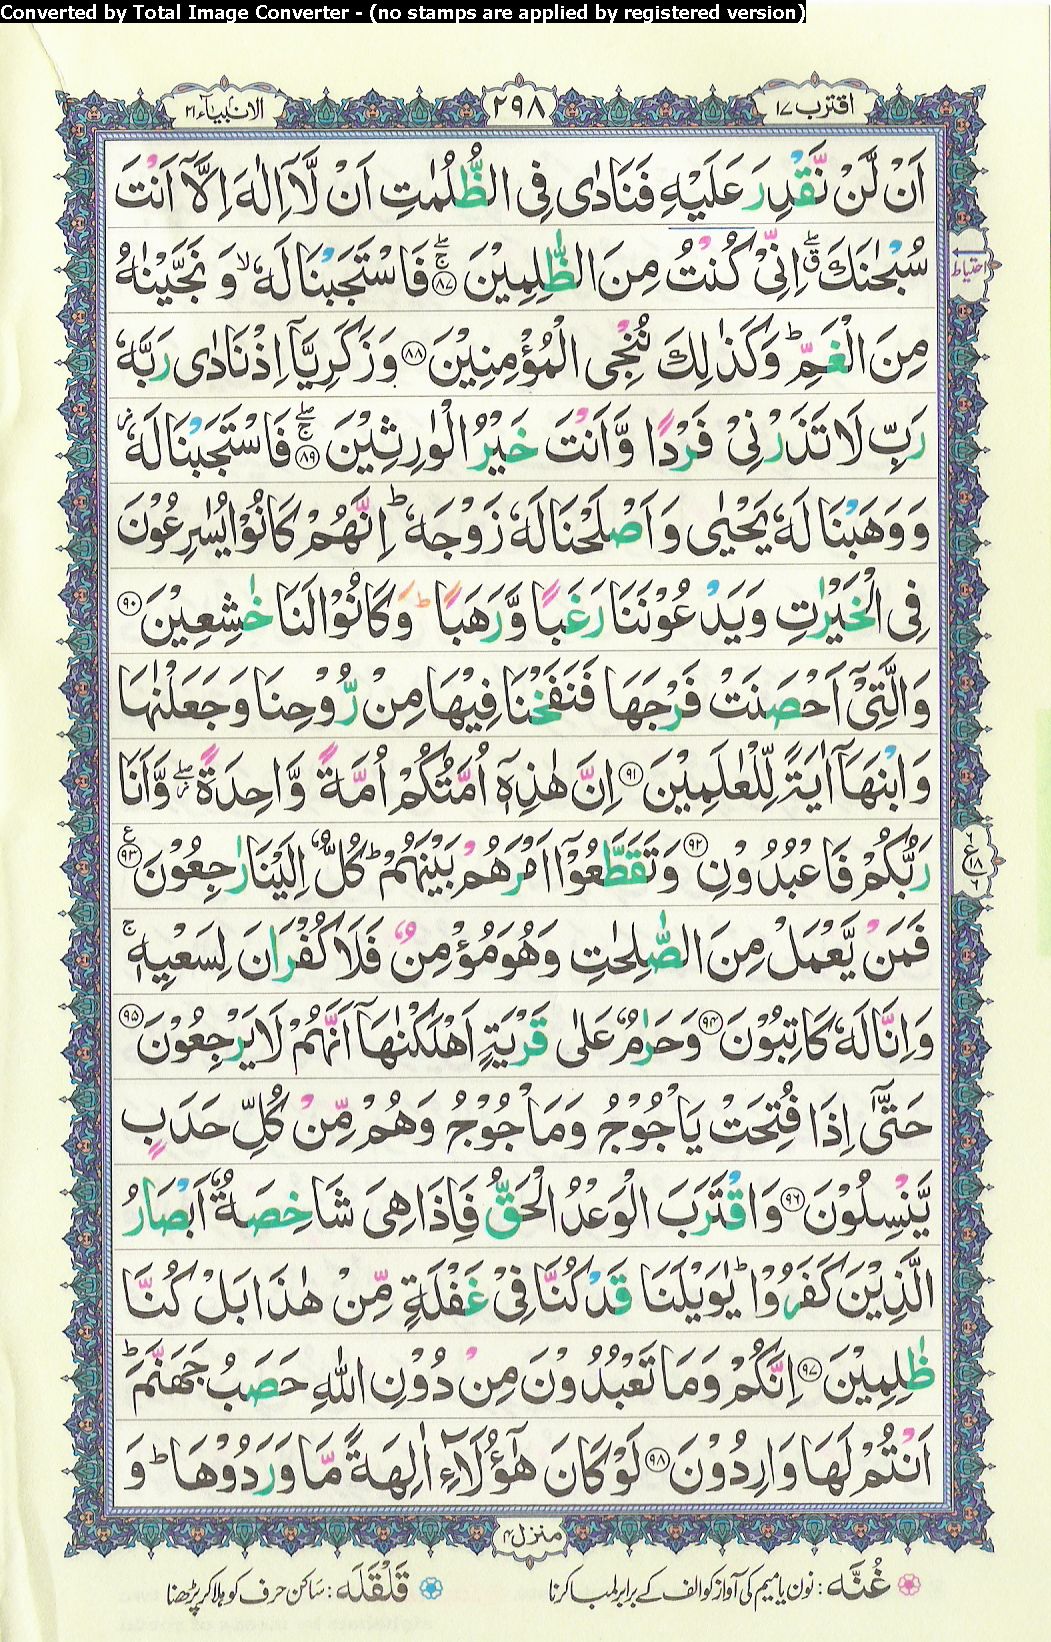 Converted by Total Image Converter - (no stamps are applied by registered version)
اقترب ١٧
٢٩٨
الانبياء ٢١
اَنْ لَّنْ نَّقْدِرَ عَلَيْهِ فَنَادٰى فِى الظُّلُمٰتِ اَنْ لَّاۤ اِلٰهَ اِلَّاۤ اَنْتَ
سُبْحٰنَكَ ۖق اِنِّىْ كُنْتُ مِنَ الظّٰلِمِيْنَ ۖۚ ٨٧ فَاسْتَجَبْنَا لَهٗ ۙ وَ نَجَّيْنٰهُ
احتیاط
مِنَ الْغَمِّ ؕ وَكَذٰلِكَ نُنْجِى الْمُؤْمِنِيْنَ ٨٨ وَزَكَرِيَّاۤ اِذْ نَادٰى رَبَّهٗ
رَبِّ لَا تَذَرْنِىْ فَرْدًا وَّاَنْتَ خَيْرُ الْوٰرِثِيْنَ ۖۚ ٨٩ فَاسْتَجَبْنَا لَهٗ ز
وَوَهَبْنَا لَهٗ يَحْيٰى وَاَصْلَحْنَا لَهٗ زَوْجَهٗ ؕ اِنَّهُمْ كَانُوْا يُسٰرِعُوْنَ
فِى الْخَيْرٰتِ وَيَدْعُوْنَنَا رَغَبًا وَّرَهَبًا ؕ وَكَانُوْا لَنَا خٰشِعِيْنَ ٩٠
وَالَّتِىْۤ اَحْصَنَتْ فَرْجَهَا فَنَفَخْنَا فِيْهَا مِنْ رُّوْحِنَا وَجَعَلْنٰهَا
وَابْنَهَاۤ اٰيَةً لِّلْعٰلَمِيْنَ ٩١ اِنَّ هٰذِهٖۤ اُمَّتُكُمْ اُمَّةً وَّاحِدَةً ۖز وَّاَنَا
رَبُّكُمْ فَاعْبُدُوْنِ ٩٢ وَتَقَطَّعُوْۤا اَمْرَهُمْ بَيْنَهُمْ ؕ كُلٌّ اِلَيْنَا رٰجِعُوْنَ ٩٣ ع
٦ ع ١٨ ٦
فَمَنْ يَّعْمَلْ مِنَ الصّٰلِحٰتِ وَهُوَ مُؤْمِنٌ فَلَا كُفْرَانَ لِسَعْيِهٖ ۚ
وَاِنَّا لَهٗ كَاتِبُوْنَ ٩٤ وَحَرٰمٌ عَلٰى قَرْيَةٍ اَهْلَكْنٰهَاۤ اَنَّهُمْ لَا يَرْجِعُوْنَ ٩٥
حَتّٰۤى اِذَا فُتِحَتْ يَاْجُوْجُ وَمَاْجُوْجُ وَهُمْ مِّنْ كُلِّ حَدَبٍ
يَّنْسِلُوْنَ ٩٦ وَاقْتَرَبَ الْوَعْدُ الْحَقُّ فَاِذَا هِىَ شَاخِصَةٌ اَبْصَارُ
الَّذِيْنَ كَفَرُوْا ؕ يٰوَيْلَنَا قَدْ كُنَّا فِىْ غَفْلَةٍ مِّنْ هٰذَا بَلْ كُنَّا
ظٰلِمِيْنَ ٩٧ اِنَّكُمْ وَمَا تَعْبُدُوْنَ مِنْ دُوْنِ اللّٰهِ حَصَبُ جَهَنَّمَ ؕ
اَنْتُمْ لَهَا وَارِدُوْنَ ٩٨ لَوْ كَانَ هٰۤؤُلَاۤءِ اٰلِهَةً مَّا وَرَدُوْهَا ؕ وَ
منزل ٤
غُنَّه : نون یا میم کی آواز کو الف کے برابر لمبا کرنا
قَلْقَلَه : ساکن حرف کو ہلا کر پڑھنا